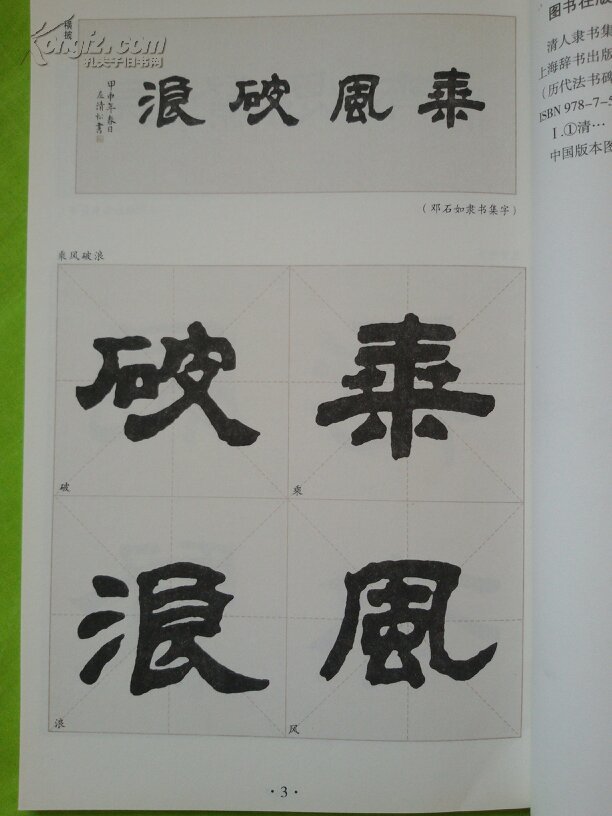 横披
kongfz.com
孔夫子旧书网
乘風破浪
甲申年春日
左清松書
(邓石如隶书集字)
乘风破浪
乘
風
破
浪
乘
风
破
浪
·3·
图书在版
清人隶书集
上海辞书出版
(历代法书碑
ISBN 978-7-5
Ⅰ.①清…
中国版本图